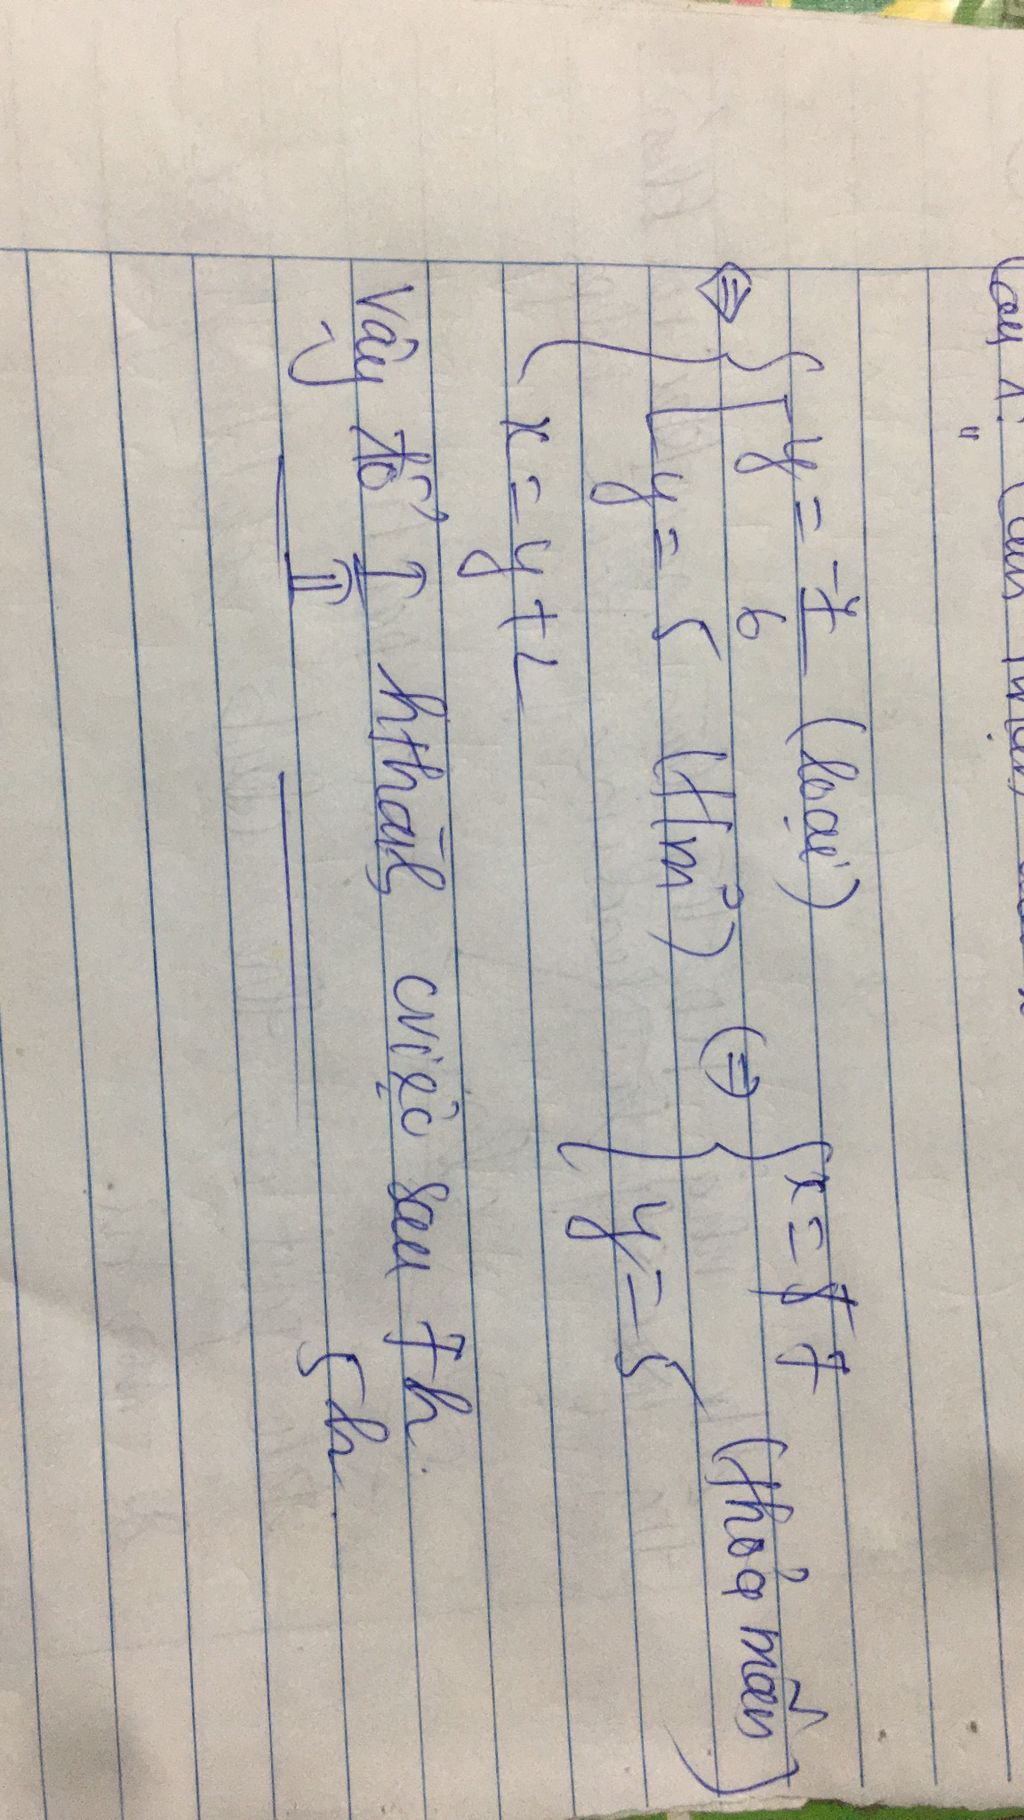 ⇔ { [ y = -7/6 (loại)
y = 5 (t/m²) ⇔ { x = 7
x = y + 2 y = 5 (thỏa mãn)
Vậy tổ I hthành cviệc sau 7h.
II 5h.